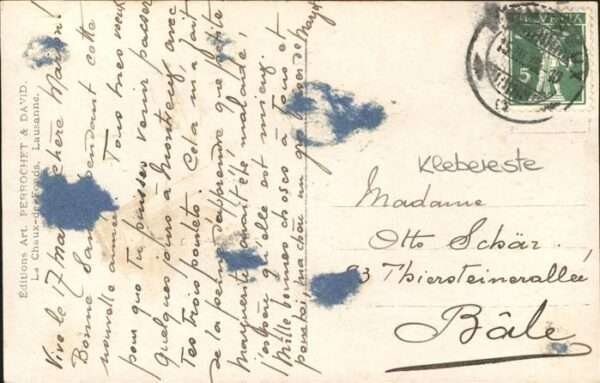 Éditions Art. PERROCHET & DAVID.
La Chaux-de-Fonds, Lausanne.
Vive le 17 mars, chère Marion!
Bonne Santé pendant cette
nouvelle année. Tous tres veux
pour que tu puisses venir passer
quelques jours à Montreux avec
tes trois poulets. Cela m'a fait
de la peine d'apprendre que petite
Marguerite avait été malade,
j'espère qu'elle est mieux.
Mille bonnes choses à tous et
pour toi, ma chou un gros baiser de
HELVETIA
5
Klebereste
Madame
Otto Schär.
83 Thiersteinerallee
Bâle